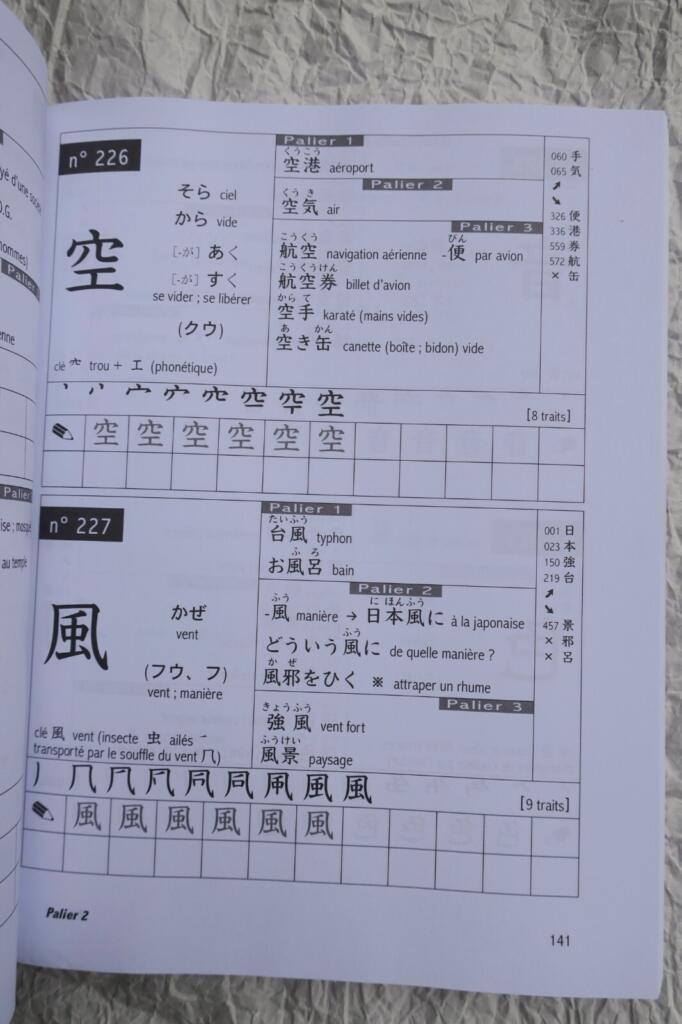 yé d'une socié
O.G.
nommes)
Palier
enne
Palier
ise ; mosqu
au temple
n° 226
空
そら ciel
から vide
[-が] あく
[-が] すく
se vider ; se libérer
(クウ)
clé 穴 trou + 工 (phonétique)
Palier 1
くうこう
空港 aéroport
Palier 2
くう き
空気 air
Palier 3
こうくう びん
航空 navigation aérienne -便 par avion
こうくうけん
航空券 billet d'avion
から て
空手 karaté (mains vides)
あ かん
空き缶 canette (boîte ; bidon) vide
060 手
065 気
➚
➘
326 便
336 港
559 券
572 航
× 缶
空
[8 traits]
空 空 空 空 空 空
n° 227
風
かぜ
vent
(フウ、フ)
vent ; manière
clé 風 vent (insecte 虫 ailés
transporté par le souffle du vent 几)
Palier 1
たいふう
台風 typhon
ふ ろ
お風呂 bain
Palier 2
ふう に ほんふう
-風 manière → 日本風に à la japonaise
ふう
どういう風に de quelle manière ?
か ぜ
風邪をひく ※ attraper un rhume
Palier 3
きょうふう
強風 vent fort
ふうけい
風景 paysage
001 日
023 本
150 強
219 台
➚
➘
457 景
× 邪
× 呂
風
[9 traits]
風 風 風 風 風 風
Palier 2
141